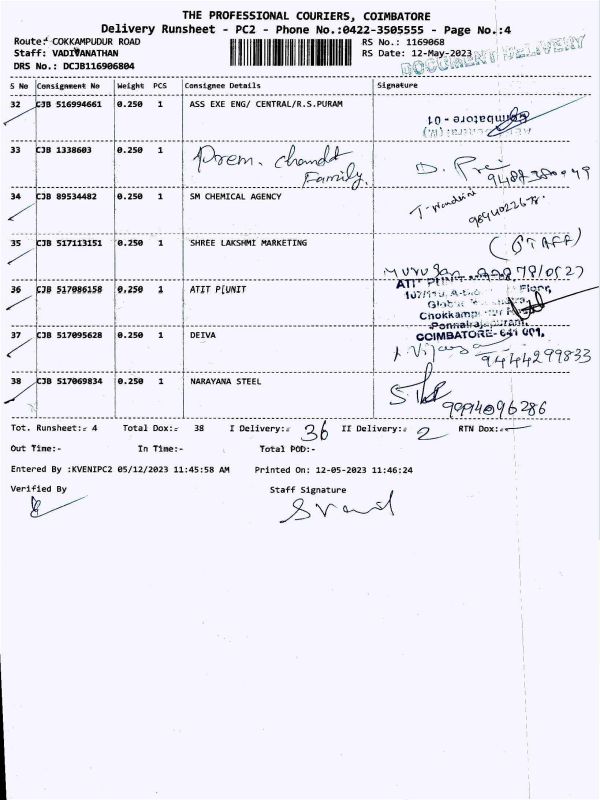 THE PROFESSIONAL COURIERS, COIMBATORE
Delivery Runsheet - PC2 - Phone No.:0422-3505555 - Page No.:4
Route: COKKAMPUDUR ROAD RS No.: 1169068
Staff: VADIVANATHAN RS Date: 12-May-2023
DOCUMENT DELIVERY
DRS No.: DCJB116906804
S No Consignment No Weight PCS Consignee Details Signature
32 CJB 516994661 0.250 1 ASS EXE ENG/ CENTRAL/R.S.PURAM
Coimbatore - 01
33 CJB 1338603 0.250 1 Prem. Chandt
Family. D.
34 CJB 89534482 0.250 1 SM CHEMICAL AGENCY
35 CJB 517113151 0.250 1 SHREE LAKSHMI MARKETING (STAFF)
Murugan
36 CJB 517086158 0.250 1 ATIT P[UNIT ATIT PUNIT
Floor,
Chokkampudur Road
Ponnairajapuram,
COIMBATORE- 641 001.
37 CJB 517095628 0.250 1 DEIVA
9444299833
38 CJB 517069834 0.250 1 NARAYANA STEEL
9994096286
Tot. Runsheet:- 4 Total Dox:- 38 I Delivery:- 36 II Delivery:- 2 RTN Dox:-
Out Time:- In Time:- Total POD:-
Entered By :KVENIPC2 05/12/2023 11:45:58 AM Printed On: 12-05-2023 11:46:24
Verified By Staff Signature